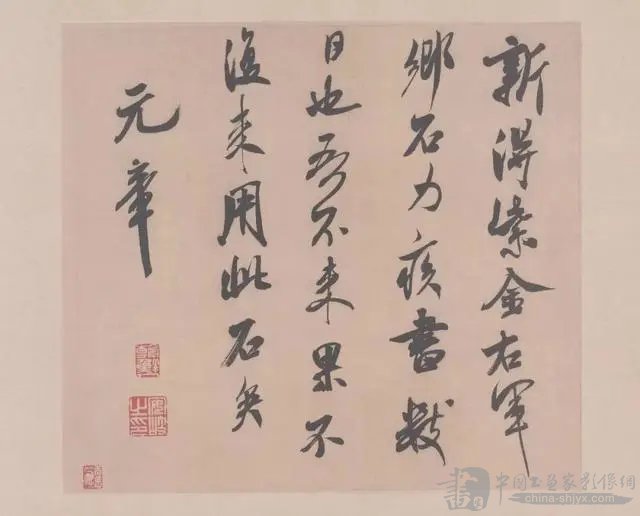 新得紫金右軍
鄉石力疾書數
日也吾不来果不
復来用此石矣
元章
書 中國書畫家影像網
china-shjyx.com